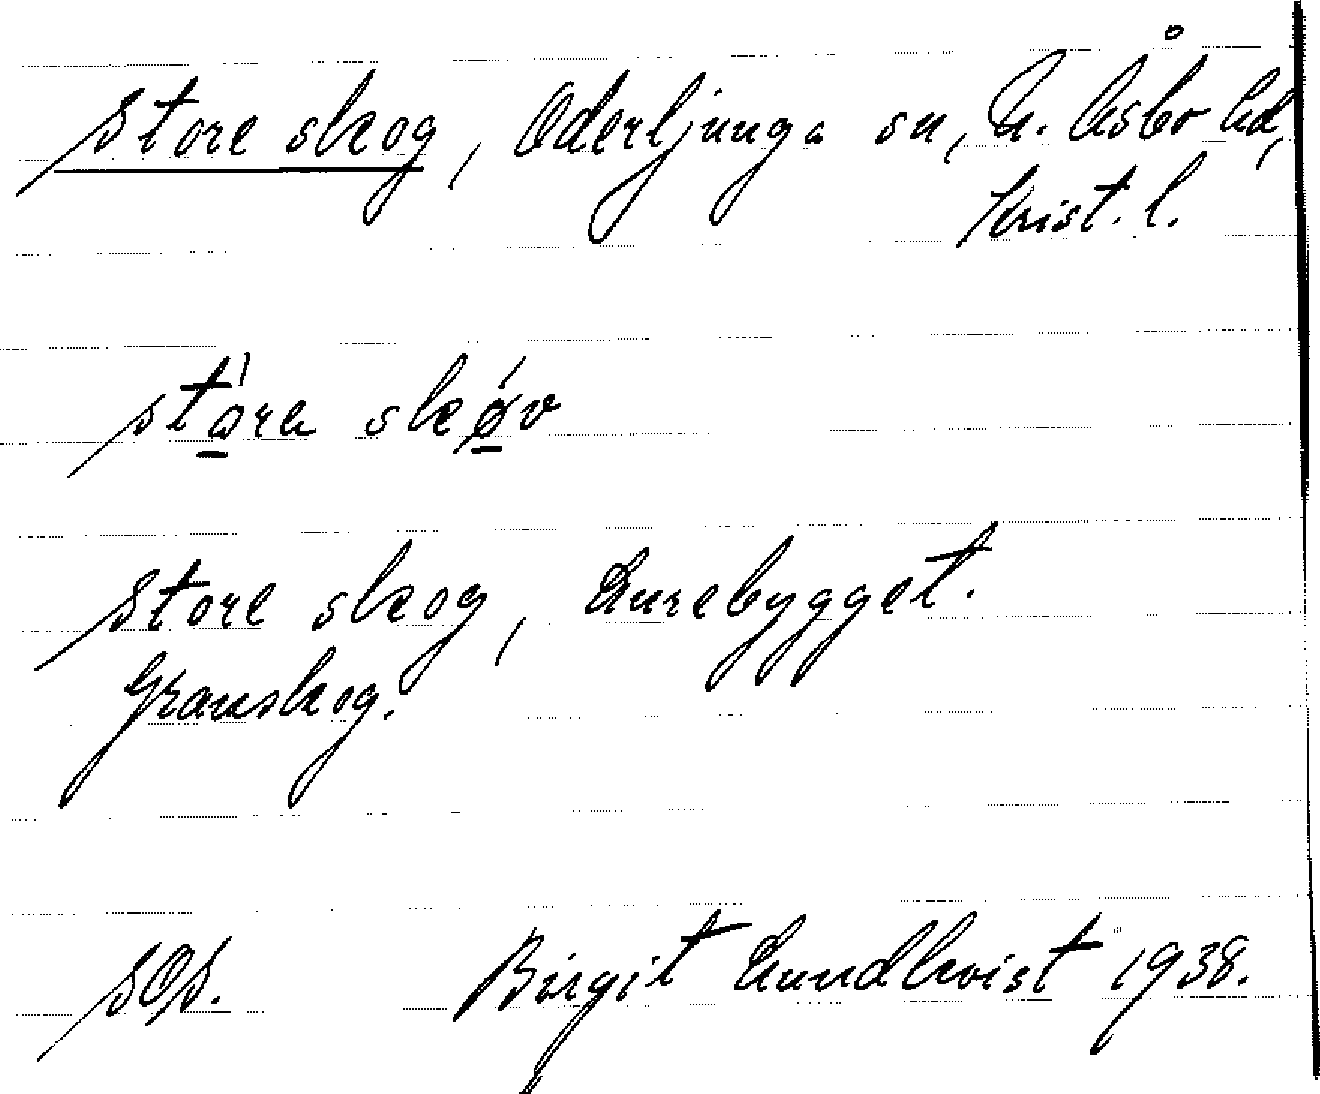 Store skog, Oderljunga sn, N. Åsbo hd,
Krist. l.
stora skøv
Store skog, Lurebygget.
Granskog.
SOS. Birgit Lundkvist 1938.